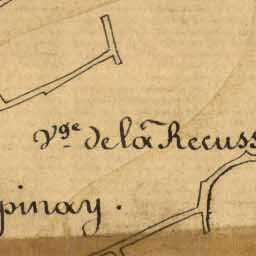 Vge de la Recuss
pinay.